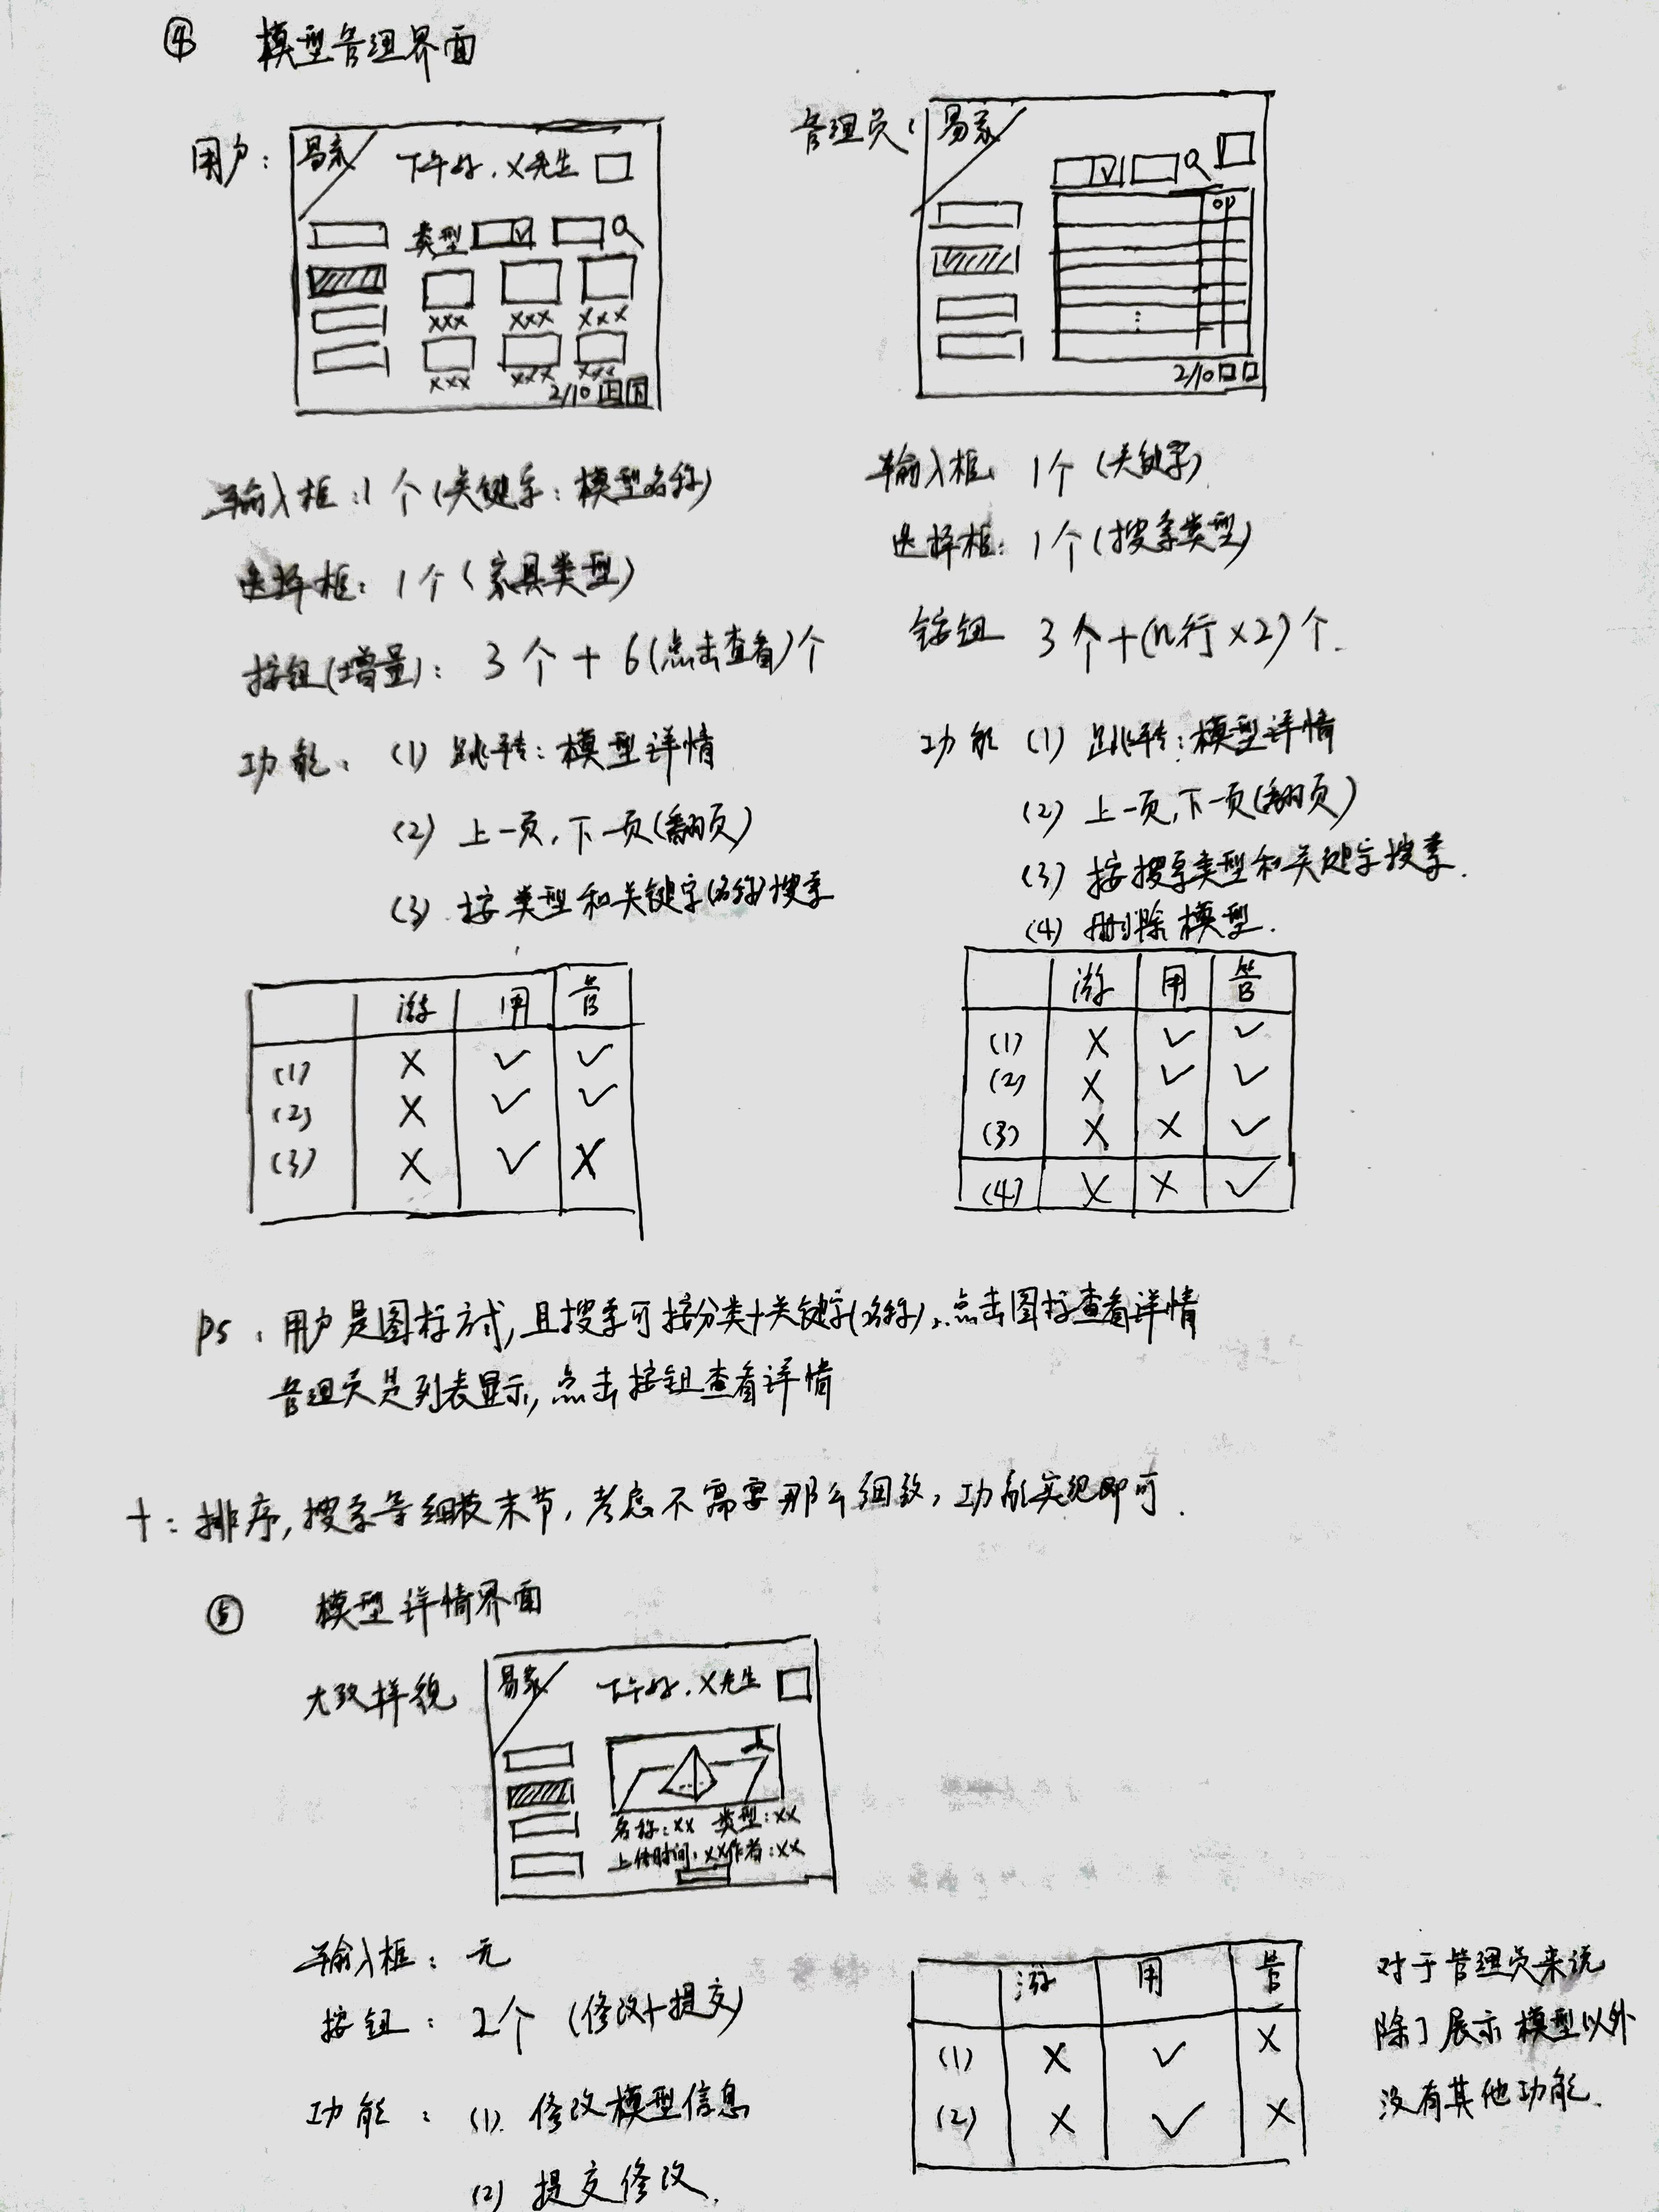 ④ 模型管理界面
用户:
易家 下午好.X先生
类型
xxx xxx xxx
xxx xxx xxx
2/10 上 下
输入框:1个(关键字:模型名称)
选择框:1个(家具类型)
按钮(增量):3个+6(点击查看)个
功能:(1) 跳转:模型详情
(2) 上一页,下一页(翻页)
(3) 按类型和关键字(名称)搜索
游 用 管
(1) X ✓ ✓
(2) X ✓ ✓
(3) X ✓ X
管理员:
易家
op
⋮
2/10
输入框 1个(关键字)
选择框:1个(搜索类型)
按钮 3个+(n行x2)个.
功能 (1) 跳转:模型详情
(2) 上一页,下一页(翻页)
(3) 按搜索类型和关键字搜索.
(4) 删除模型.
游 用 管
(1) X ✓ ✓
(2) X ✓ ✓
(3) X X ✓
(4) X X ✓
ps:用户是图标方式,且搜索可按分类+关键字(名称),点击图标查看详情
管理员是列表显示,点击按钮查看详情
+:排序,搜索等细枝末节,考虑不需要那么细致,功能实现即可.
⑤ 模型详情界面
大致样貌
易家 下午好.X先生
名称:xx 类型:xx
上传时间:xx 作者:xx
输入框:无
按钮:2个(修改+提交)
功能:(1) 修改模型信息
(2) 提交修改.
游 用 管
(1) X ✓ X
(2) X ✓ X
对于管理员来说
除了展示模型以外
没有其他功能.